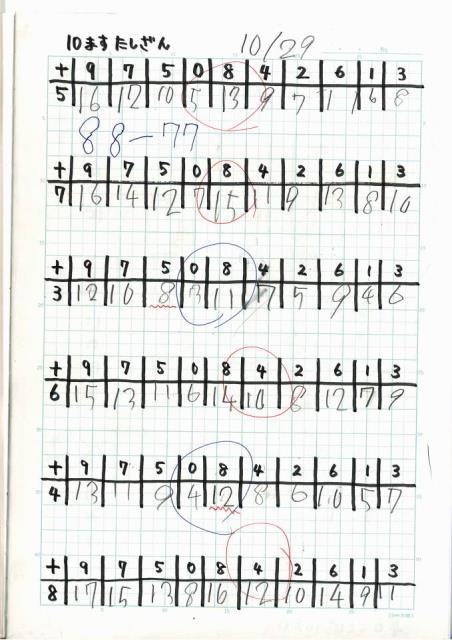 10ます たしざん 10/29
+ 9 7 5 0 8 4 2 6 1 3
5 16 12 10 5 13 9 7 1 6 8
88-77
+ 9 7 5 0 8 4 2 6 1 3
7 16 14 12 7 15 11 9 13 8 10
+ 9 7 5 0 8 4 2 6 1 3
3 12 10 8 3 11 7 5 9 4 6
+ 9 7 5 0 8 4 2 6 1 3
6 15 13 11 6 14 10 8 12 7 9
+ 9 7 5 0 8 4 2 6 1 3
4 13 11 9 4 12 8 6 10 5 7
+ 9 7 5 0 8 4 2 6 1 3
8 17 15 13 8 16 12 10 14 9 11